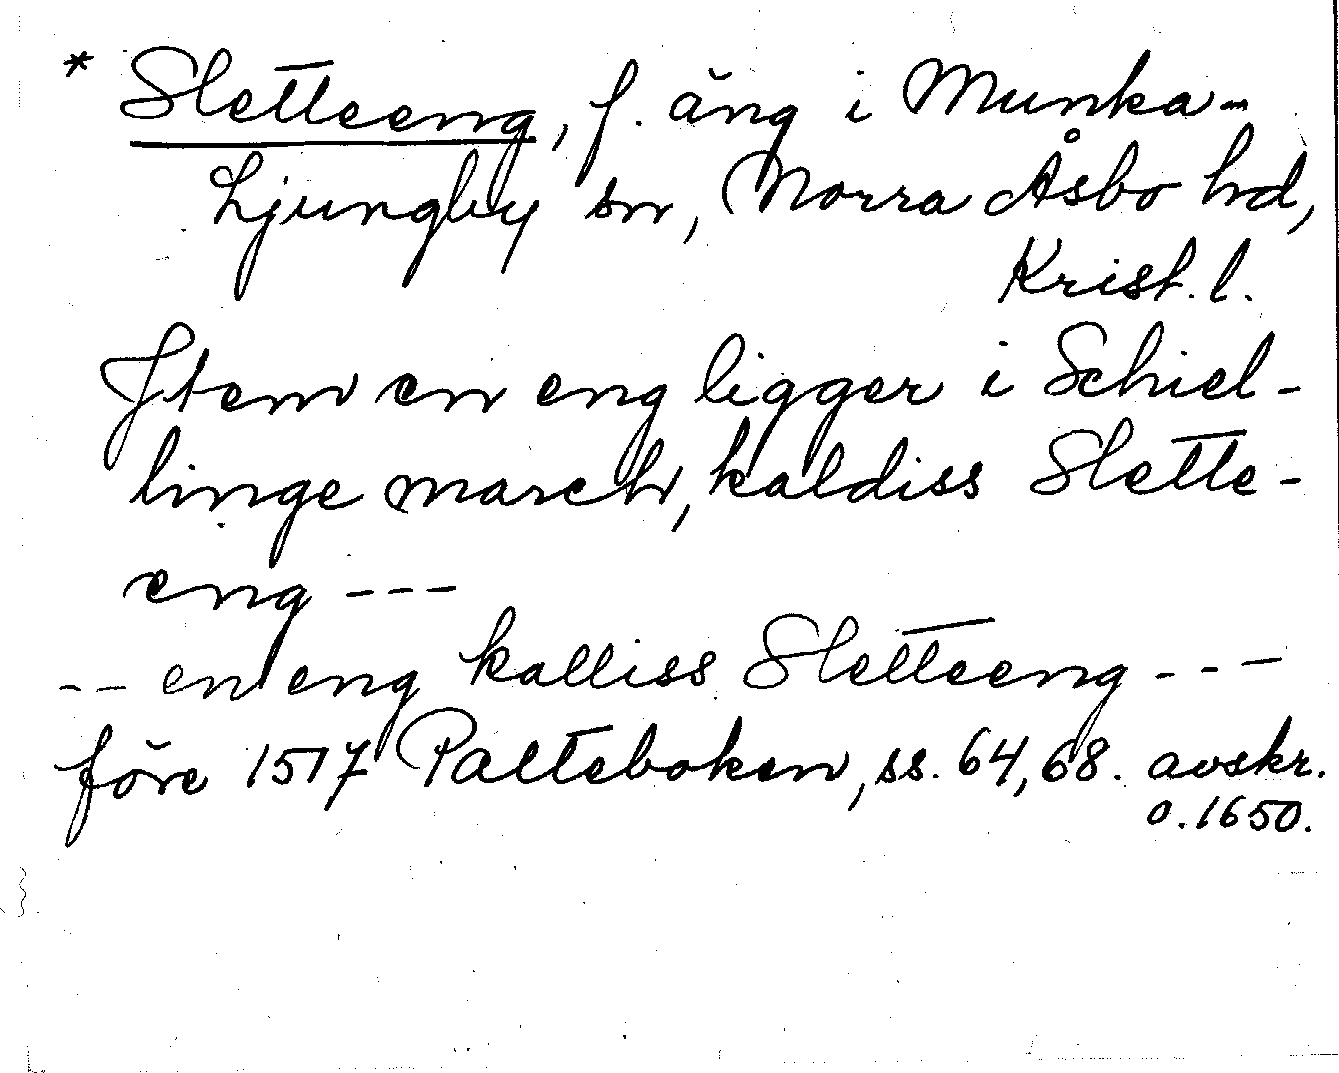 * Sletteeng, f. äng i Munka-
Ljungby sn, Norra Åsbo hd,
Krist. l.
Item en eng ligger i Schiel-
linge march, kaldiss Slette-
eng ---
-- en eng kalliss Sletteeng ---
före 1517 Palteboken, ss. 64, 68. avskr.
o. 1650.